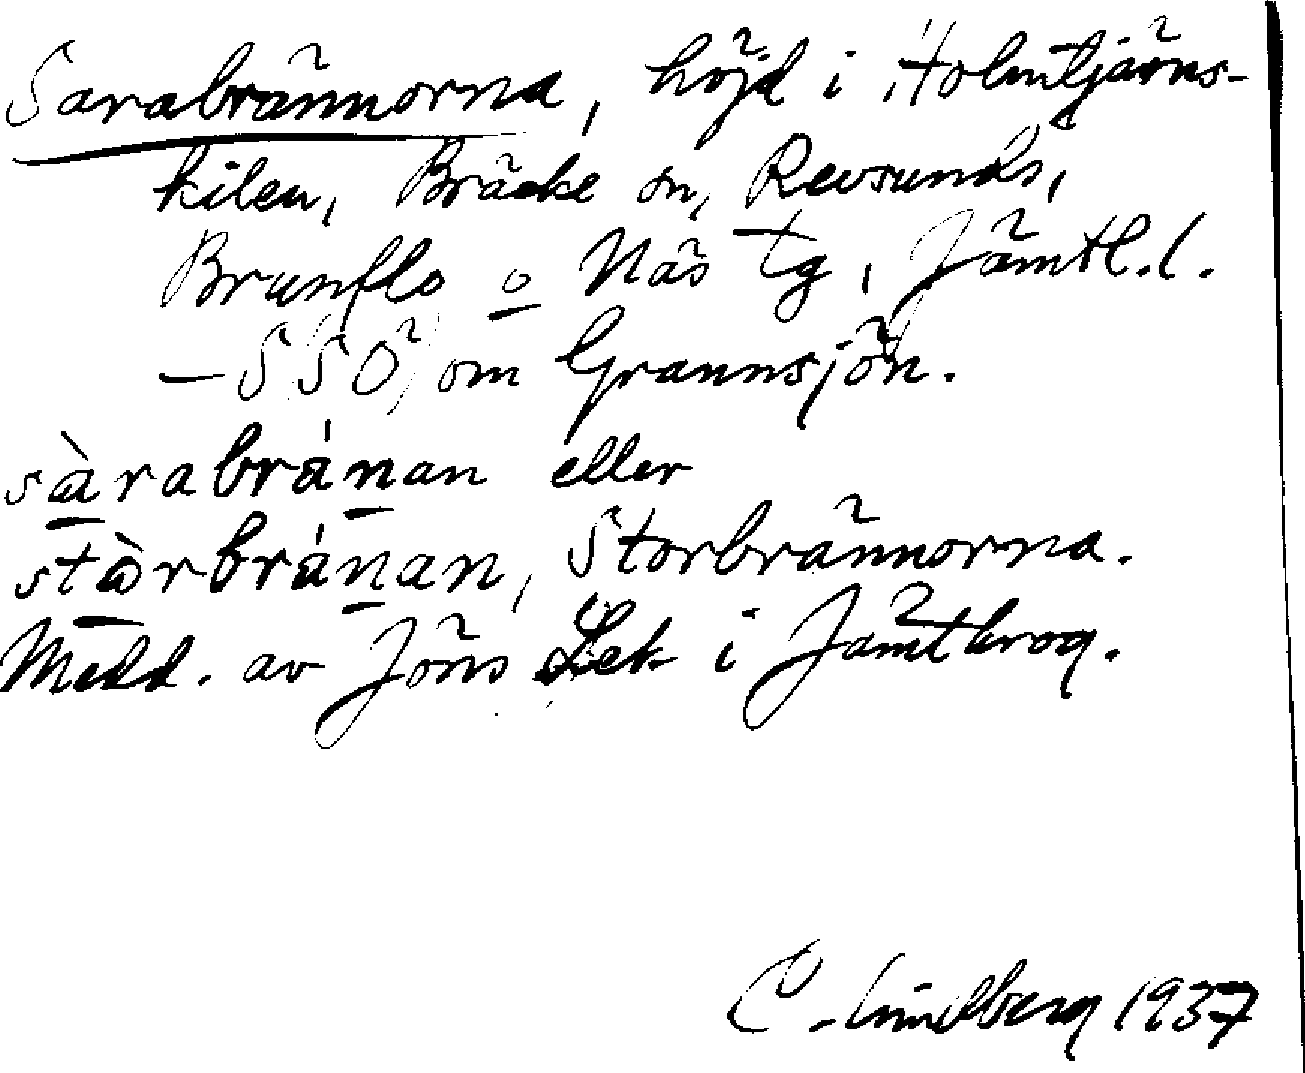 Sarabrännorna, höjd i Holmtjärns-
kilen, Bräcke sn, Revsunds,
Brunflo o Näs tg, Jämtl.l.
— SSÖ om Grannsjön.
sàrabránan eller
stàrbránan, Storbrännorna.
Medd. av Jöns Lek i Jämtkrog.
C. Lindberg 1937